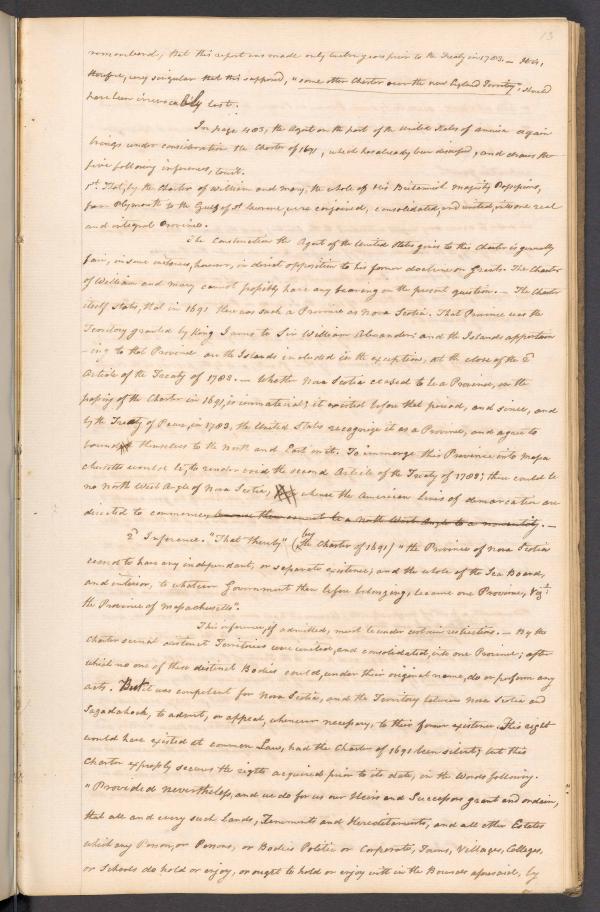 13
remembered, that this report was made only twelve years prior to the Treaty in 1783. — It is,
therefore, very singular that this supposed, "some other Charter over the new England Territory" should
have been irrevocably lost.
In page 403, the Agent on the part of the United States of America again
brings under consideration the Charter of 1691, which has already been discussed, and draws the
five following inferences, to wit.
1st. That, by the Charter of William and Mary, the whole of His Britannick Majestys Possessions,
from Plymouth to the Gulf of St Lawrence, were conjoined, consolidated, and united, into one real
and integral Province.
The Construction the Agent of the United States gives to this Charter is generally
fair, in some instances, however, in direct opposition to his former doctrine on Grants. The Charter
of William and Mary cannot possibly have any bearing on the present question. — The Charter
itself states, that in 1691 there was such a Province as Nova Scotia. That Province was the
Territory granted by King James to Sir William Alexander: and the Islands appertain
-ing to that Province are the Islands included in the exception, at the close of the 2d
Article of the Treaty of 1783. — Whether Nova Scotia ceased to be a Province, on the
passing of the Charter in 1691, is immaterial; it existed before that period, and since, and
by the Treaty of Peace, in 1783, the United States recognize it as a Province, and agree to
bound themselves to the North and East on it. To immerge this Province into Massa
chusetts would be to render void the second Article of the Treaty of 1783; there could be
no North West Angle of Nova Scotia, whence the American lines of demarcation are
directed to commence, because there cannot be a North West Angle to a nonentity. —
2d Inference. "That thereby" (by the Charter of 1691) "the Province of Nova Scotia
ceased to have any independent, or separate existence; and the whole of the Sea Board,
and interior, to whatever Government then before belonging, became one Province, Vizt.
the Province of Massachusetts".
This inference, if admitted, must be under certain restrictions. — By the
Charter several distinct Territories were united, and consolidated, into one Province; after
which no one of these distinct Bodies could, under their original name, do or perform any
acts. But it was competent for Nova Scotia, and the Territory between Nova Scotia and
Sagadahock, to advert, or appeal, whenever necessary, to their former existence. This right
would have existed at common Law, had the Charter of 1691 been silent; but this
Charter expressly secures the rights acquired prior to its date, in the Words following.
"Provided nevertheless, and we do for us our Heirs and Successors grant and ordain,
that all and every such Lands, Tenements and Hereditaments, and all other Estates
which any Person, or Persons, or Bodies Politic or Corporate, Towns, Villages, Colleges,
or Schools do hold or enjoy, or ought to hold or enjoy with in the Bounds aforesaid, by